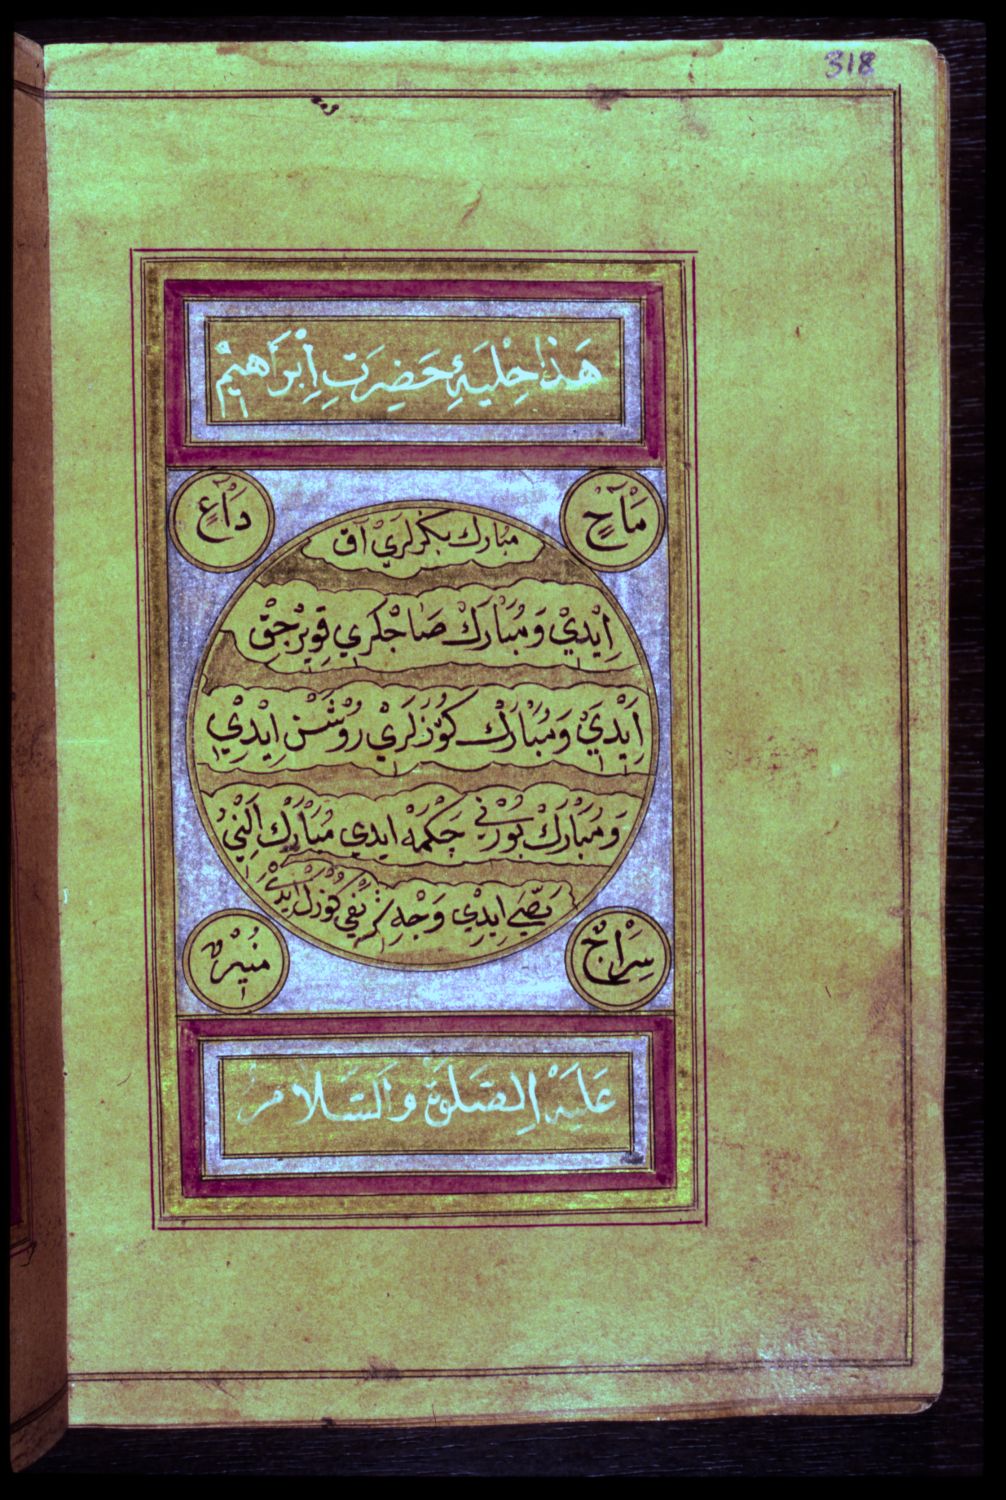 318
هَذَا حِلْيَۀِ حَضِرَتِ اِبْرَاهِيمْ
مَاْحٍ
دَاْعٍ
مُبَارك بكزلَريْ آق
اِيْدِيْ وَمُبَارَكْ صَاجْلَري قِوِيرْجِقْ
اَيْدِيْ وَمُبَارَكْ كوُزْلَرِيْ رُوْشَنْ اِيْدِيْ
وَمُبَارَكْ بُورْنِي چَكْمَهْ ايدي مُبَارَكْ اَلْنِيْ
يَصِّي اِيدِيْ وَجْهِ شَرِيْفِي كُوزَلْ ايْدِيْ
سِرَاْجٌ
مُنِيْرٌ
عَلَيْهِ الصَّلَوةُ وَالسَّلَامُ